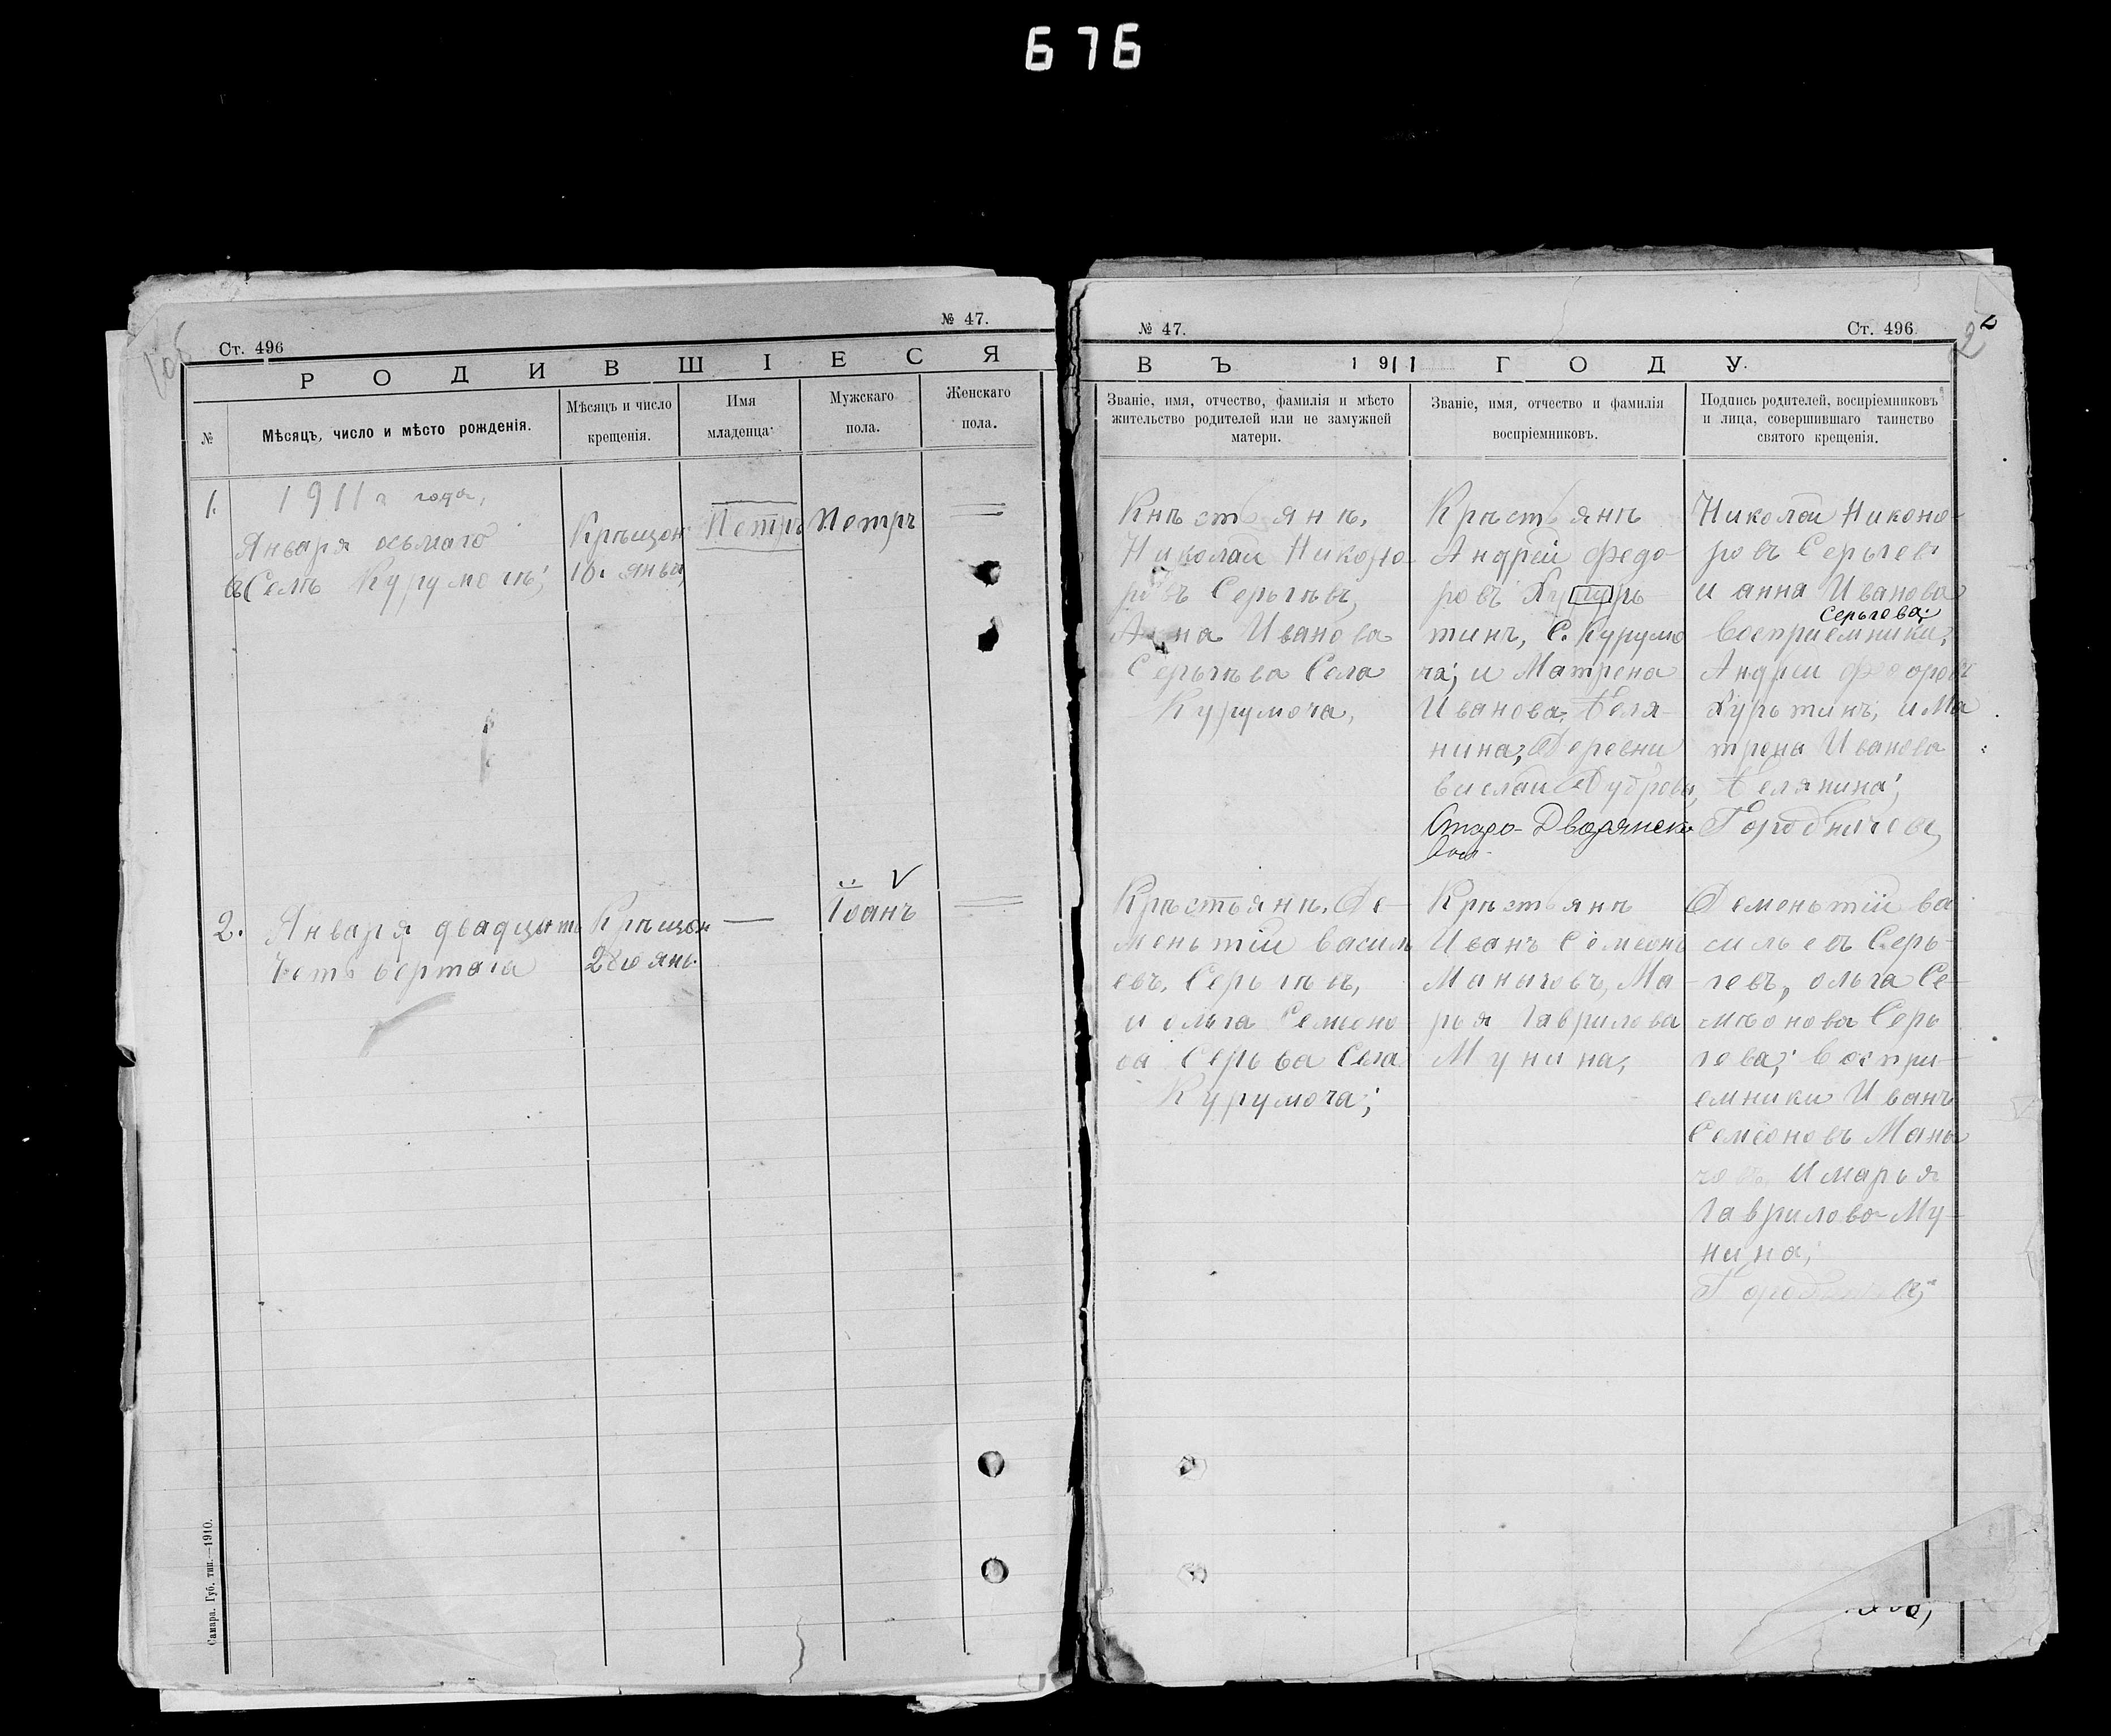 676
№ 47.
Ст. 496
РОДИВШІЕСЯ
№
Мѣсяцъ, число и мѣсто рожденія.
Мѣсяцъ и число
крещенія.
Имя
младенца
Мужскаго
пола.
Женскаго
пола.
1.
1911 года,
Января осьмаго
въ Селѣ Курумочѣ;
Крѣщон
10. янва
Петръ
Петръ
2.
Января двадцать
Четьвертага
Крѣщон
28го янь.
—
Іоанъ
Самара. Губ. тип.—1910.
№ 47.
Ст. 496.
2
ВЪ 1911 ГОДУ.
Званіе, имя, отчество, фамилія и мѣсто
жительство родителей или не замужней
матери.
Званіе, имя, отчество и фамилія
воспріемниковъ.
Подпись родителей, воспріемниковъ
и лица, совершившаго таинство
святого крещенія.
Крѣстьянѣ,
Николай Никоно-
ровъ Серьгѣвъ,
Анна Иванова
Серьгѣва Села
Курумоча,
Крѣстьянѣ
Андрѣй Федо-
ровъ
тинъ, С. Курумо
ча; и Матрена
Иванова, Беля-
нина; Деревни
Дуброви,
Старо-Дворянско
Николай Никоно-
ровъ Серьгев
и анна Иванова
Серьгева;
Восприемники;
Андреи Федоровъ
Курьтинъ, и Ма
трена Иванова
Белянина;
Городничевъ,
Крѣстьянѣ. Де-
меньтій Василь
евъ, Серьгѣвъ,
и ольга Семионо
ва Серьва Села
Курумоча;
Крѣстьянѣ
Иванъ Семионъ
Маначовъ, Ма-
рья Гаврилова
Мунина,
Деменьтій Ва
сильевъ Серь-
гевъ, ольга Се-
мѣонова Серь
гева; Воспри-
емники Иванъ
Семеоновъ Мана
човъ, И марья
Гаврилова Му-
нина;